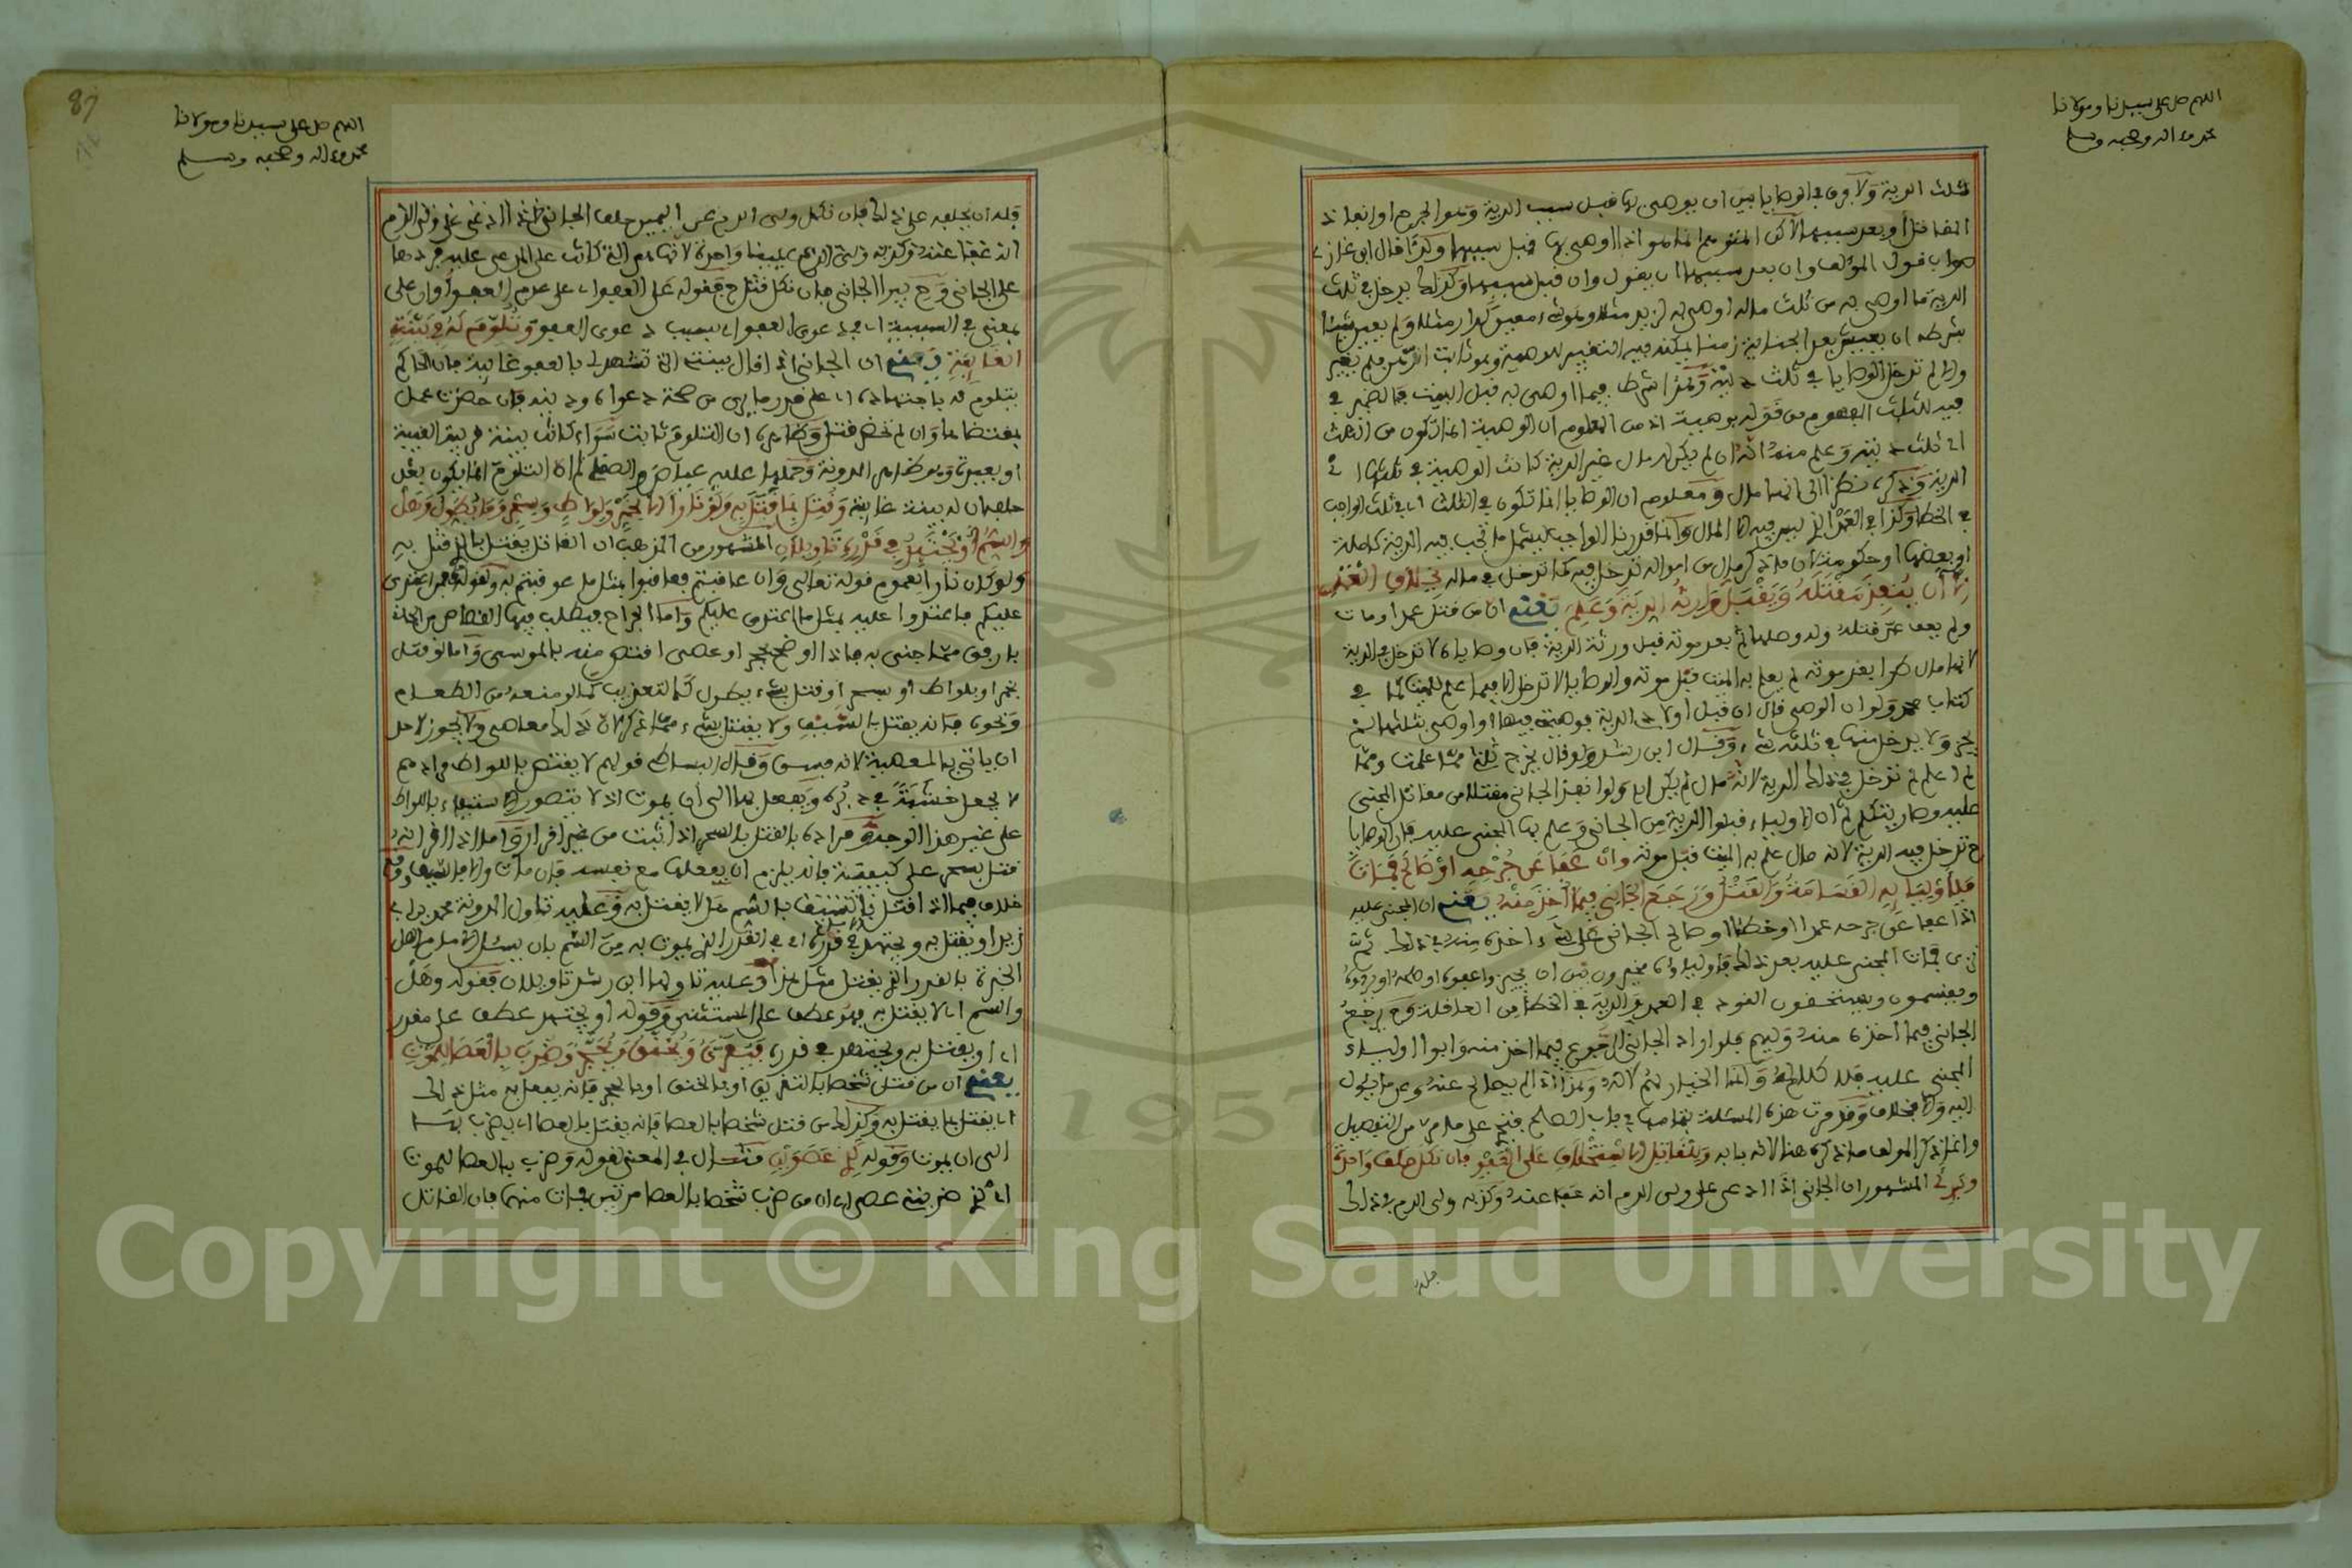 اللهم صل على سيدنا ومولانا
محمد وعلى اله وصحبه وسلم
ثلث الدية ولا فرق في الوصايا بين ان يوصى بها قبل سبب الدية وهو الجرح او انفاذ
المقاتل او بعد سببها لاكن المتوهم انما هو اذا اوصى بها قبل سببها ولذا قال ابن غازي
صواب قول المؤلف وان بعد سببها ان يقول وان قبل سببها وكذلك يدخل في ثلث
الدية ما اوصى به من ثلث ماله او اوصى لزيد مثلا وبشيء معين كدار مثلا ولم يغير شيئا
بشرط ان يعيش بعد الجناية زمنا يمكنه فيه التغيير للوصية ولم يغير
والا لم تدخل الوصايا في ثلث ديته وهذا شرط فيما اوصى به قبل السبب فالضمير في
فيه للثلث المفهوم من قوله بوصية اذ من المعلوم ان الوصية انما تكون من الثلث
اي ثلث ديته وعلم منه انه ان لم يكن له مال غير الدية كانت الوصية في ثلثها اي
الدية وذكره نظرا الى انها مال ومعلوم ان الوصايا انما تكون في الثلث اي في ثلث الواجب
في الخطا وكذا في العمد الذي ليس فيه الا المال وانما قدرنا الواجب ليشمل ما تجب فيه الدية كاملة
او بعضها او حكومة اي ما ذكر مال من امواله تدخل فيه كما تدخل في ماله بخلاف العمد
الا ان ينفذ مقتله ويقبل وارثه الدية وعلم يعني ان من قتل عمدا ومات
ولم يعف عن قتله ولا وصلها ثم بعد موته قبل ورثته الدية فان وصاياه لا تدخل في الدية
لانها مال طرا بعد موته لم يعلم به الميت قبل موته والوصايا لا تدخل الا فيما علم للميت لما في
كتاب محمد ولو ان الموصي قال ان قبل اولادي الدية فوصيتي فيها او اوصى بثلثها لم
يجز ولا يدخل منها في ثلثه شيء وقال ابن رشد ولو قال يخرج ثلثي مما علمت ومما
لم اعلم لم تدخل في ذلك الدية لانه مال لم يكن له ولو انفذ الجاني مقتلا من مقاتل المجني
عليه وصار يتكلم ثم ان الاولياء قبلوا الدية من الجاني وعلم بها المجني عليه فان الوصايا
ح تدخل فيه الدية لانه مال علم به الميت قبل موته وان عفا عن جرحه او صالح فمات
فلاوليائه القسامة والقتل ورجع الجاني فيما اخذ منه يعني ان المجني عليه
اذا عفا عن جرحه عمدا او خطئا او صالح الجاني على شيء اخذه منه في ذلك ثم
نزى فمات المجني عليه بعد ذلك فاولياؤه مخيرون بين ان يجيزوا عفوه او صلحه او يردوه
ويقسمون ويستحقون القود في العمد والدية في الخطا من العاقلة وح يرجع
الجاني فيما اخذه منه وليهم فلو اراد الجاني الرجوع فيما اخذ منه وابوا اولياء
المجني عليه فلا كلام له وانما الخيار لهم لانه وهذا اذا لم يصالح عنه وعن ما يئول
اليه والا فخلاف وقد مرت هذه المسئلة بتمامها في باب الصلح فتح على ما مر من التفصيل
وانما ذكر المولف ما ذكره هنا لانه بابه وللقاتل الاستحلاف على العفو فان نكل حلف واحدة
وبرئ المشهور ان الجاني اذا ادعى على ولي الدم انه عفا عنه وكذبه ولي الدم في ذلك
فله
87
اللهم صل على سيدنا ومولانا
محمد وعلى اله وصحبه وسلم
فله ان يحلفه على ذلك فان نكل ولي الدم عن اليمين حلف الجاني
انه عفا عنه وكذبه ولي الدم يمينا واحدة لانها هي التي كانت على المدعى عليه فردها
على الجاني وح يبرا الجاني فان نكل قتل ح فقوله على العفو اي على عدم العفو او ان على
بمعنى في السببية اي في دعوى العفو اي بسبب دعوى العفو وتلوم له في بينته
الغائبة يعني ان الجاني اذا قال بينتي التي تشهد لي بالعفو غائبة فان الحاكم
يتلوم له باجتهاده اي على قدر ما يرى من صحة دعواه وديته فان حضرت عمل
بمقتضاها وان لم تحضر قتل وظاهره ان التلوم ثابت سواء كانت بينته قريبة الغيبة
او بعيدة وهو ظاهر المدونة وحملها عليه عياض والصقلي ثم ان التلوم انما يكون بعد
حلفه ان له بينة غائبة وقتل بما قتل به ولو نارا الا بخمر ولواط وسحر وما يطول وهل
والسم او يجتهد في قدره تاويلان المشهور من المذهب ان القاتل يقتل بالذي قتل به
ولو كان نارا لعموم قوله تعالى وان عاقبتم فعاقبوا بمثل ما عوقبتم به ولقوله فمن اعتدى
عليكم فاعتدوا عليه بمثل ما اعتدى عليكم واما الجراح فيطلب فيها القصاص من الجاني
بارفق مما جنى به فاذا اوضح بحجر او عصى اقتص منه بالموسى واما لو قتل
بخمر او بلواط او بسحر او قتل بشيء يطول كالتعذيب كما لو منعه من الطعام
ونحوه فانه يقتل بالسيف ولا يقتل بشيء مما ذكر لان ذلك معاصي ولا يجوز لاحد
ان ياتي بالمعصية لانه فسق وقال البساطي قولهم لا يقتص باللواط مرادهم
لا يجعل خشبة في دبره ويفعل بها الى ان يموت اذ لا يتصور الاستيفاء باللواط
على غير هذا الوجه ومراده بالقتل بالسحر اذا ثبت من غير اقرار واما اذا اقر انه
قتل بسحر على كيفية فانه يلزم ان يفعلها مع نفسه فان مات والا فالسيف وقع
خلاف فيما اذا قتل شخصا بالسم هل لا يقتل به وعليه تاول المدونة محمد بن ابي
زيد او يقتل به ويجتهد في قدره اي في القدر الذي يموت به من السم بان يسئل من اهل
الخبرة بالقدر الذي يقتل مثل هذا وعليه تاولها ابن رشد تاويلان فقوله وهل
والسم اي لا يقتل به فهو عطف على المستثنى وقوله او يجتهد عطف على مقدر
اي او يقتل به ويجتهد في قدره فيغرق ويخنق ويحجر وضرب بالعصا للموت
يعني ان من قتل شخصا بالتغريق او بالخنق او بالحجر فانه يفعل به مثل ذلك
اي يقتل بما يقتل به وكذلك من قتل شخصا بالعصا فانه يقتل بالعصا اي يضرب بها
الى ان يموت وقوله كذي عصوين مثال في المعنى لقوله وضرب بالعصا للموت
اي كذي ضربتي عصى اي ان من ضرب شخصا بالعصا مرتين فمات منهما فان القاتل
Copyright © King Saud University
1957